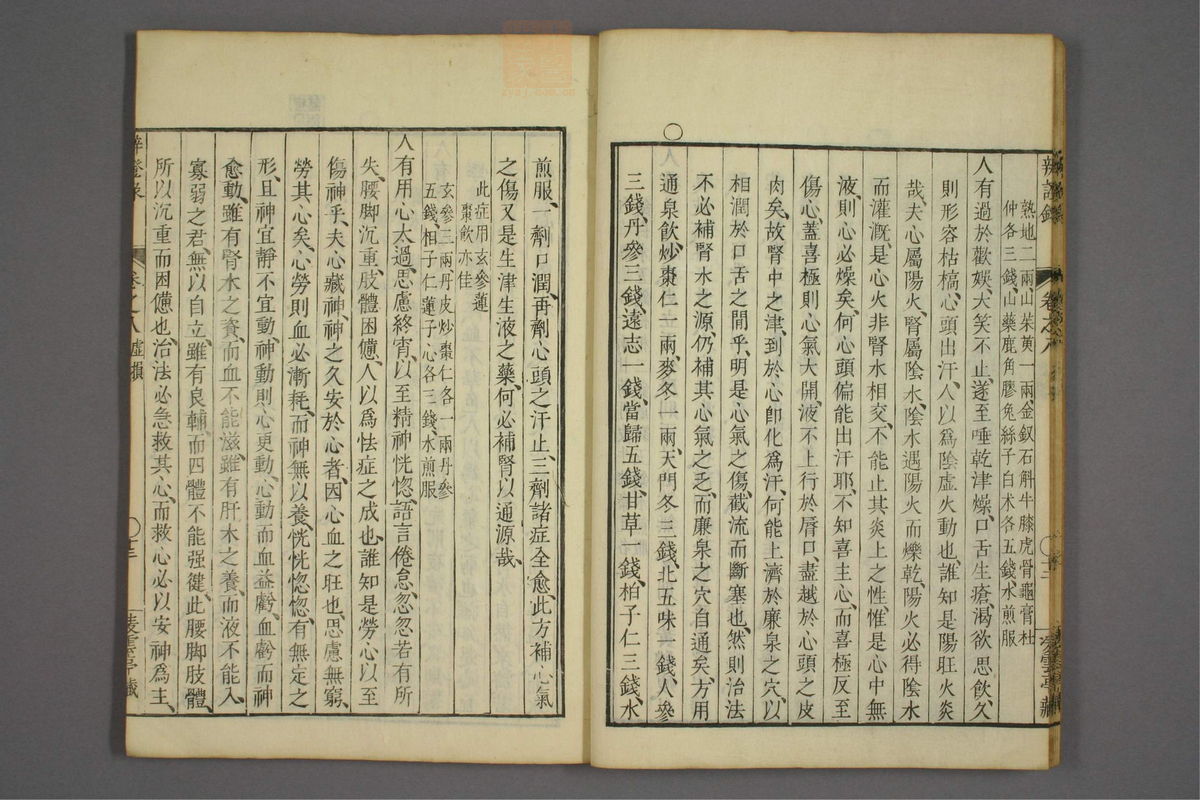 辨證錄 卷之八 凌雲亭藏
熟地二兩山茱萸一兩金釵石斛牛膝虎骨龜膏杜
仲各三錢山藥鹿角膠兔絲子白术各五錢水煎服
人有過於歡娛大笑不止遂至唾乾津燥口舌生瘡渴欲思飲久
則形容枯槁心頭出汗人以爲陰虛火動也誰知是陽旺火炎
哉夫心屬陽火腎屬陰水陰水遇陽火而爍乾陽火必得陰水
而灌漑是心火非腎水相交不能止其炎上之性惟是心中無
液則心必燥矣何心頭偏能出汗耶不知喜主心而喜極反至
傷心蓋喜極則心氣大開液不上行於脣口盡越於心頭之皮
肉矣故腎中之津到於心卽化爲汗何能上濟於廉泉之穴以
相潤於口舌之間乎明是心氣之傷截流而斷塞也然則治法
不必補腎水之源仍補其心氣之乏而廉泉之穴自通矣方用
○通泉飲炒棗仁一兩麥冬一兩天門冬三錢北五味一錢人參
三錢丹參三錢遠志一錢當歸五錢甘草一錢柏子仁三錢水
煎服一劑口潤再劑心頭之汗止三劑諸症全愈此方補心氣
之傷又是生津生液之藥何必補腎以通源哉
此症用玄參蓮
棗飲亦佳
玄參三兩丹皮炒棗仁各一兩丹參
五錢柏子仁蓮子心各三錢水煎服
人有用心太過思慮終宵以至精神恍惚語言倦怠忽忽若有所
失腰脚沉重肢體困憊人以爲怯症之成也誰知是勞心以至
傷神乎夫心藏神神之久安於心者因心血之旺也思慮無窮
勞其心矣心勞則血必漸耗而神無以養恍恍惚惚有無定之
形且神宜靜不宜動神動則心更動心動而血益虧血虧而神
愈動雖有腎水之資而血不能滋雖有肝木之養而液不能入
寡弱之君無以自立雖有良輔而四體不能强健此腰脚肢體
所以沉重而困憊也治法必急救其心而救心必以安神爲主
辨證錄 卷之八 虛損 凌雲亭藏